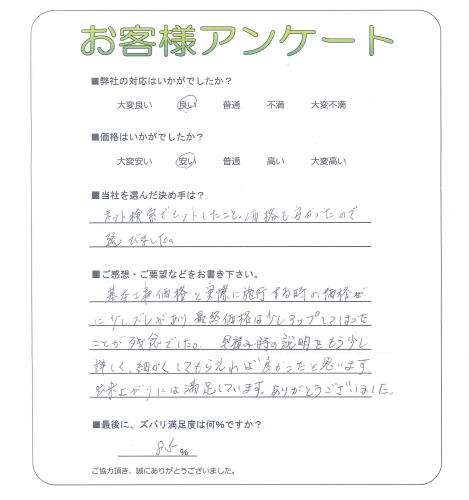 お客様アンケート
■弊社の対応はいかがでしたか？
大変良い 良い 普通 不満 大変不満
■価格はいかがでしたか？
大変安い 安い 普通 高い 大変高い
■当社を選んだ決め手は？
ネット検索でヒットしたこと。価格も安かったので
選びました。
■ご感想・ご要望などをお書き下さい。
基本工事価格と実際に施行する時の価格
に少しズレがあり、最終価格は少しアップしてしまった
ことが残念でした。見積み時の説明をもう少し
詳しく、細かくしてもらえれば良かったと思います
出来上がりには満足しています。ありがとうございました。
■最後に、ズバリ満足度は何%ですか？
85 %
ご協力頂き、誠にありがとうございました。